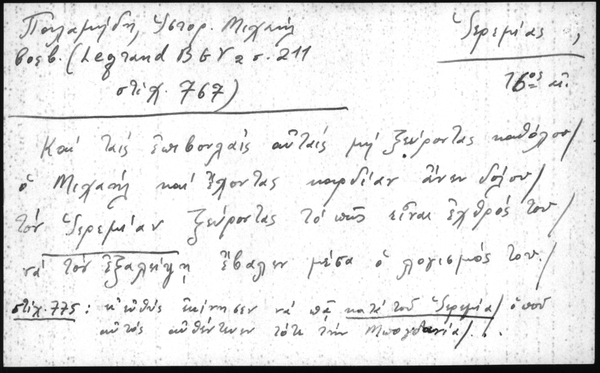 Παλαμήδη, Ἱστορ. Μιχαήλ
βοεβ. (Legrand BGV 2 σ. 211
στίχ. 767)
Ἱερεμίας,
16ος αἰ.
Καί ταῖς ἐπιβουλαῖς αὐταῖς μή ξεύροντας καθόλου/
ὁ Μιχαήλ καί ἔχοντας καρδίαν ἄνευ δόλου/
τόν Ἱερεμίαν ξεύροντας τό πῶς εἶναι ἐχθρός του/
νά τόν ἐξαλείψῃ ἔβαλεν μέσα ὁ λογισμός του./
στίχ. 775: κ' εὐθύς ἐκίνησεν νά πᾷ κατά τοῦ Ἱερεμία/ ὁποῦ
αὐτός αὐθέντευεν τότε τήν Μπογδανία/..